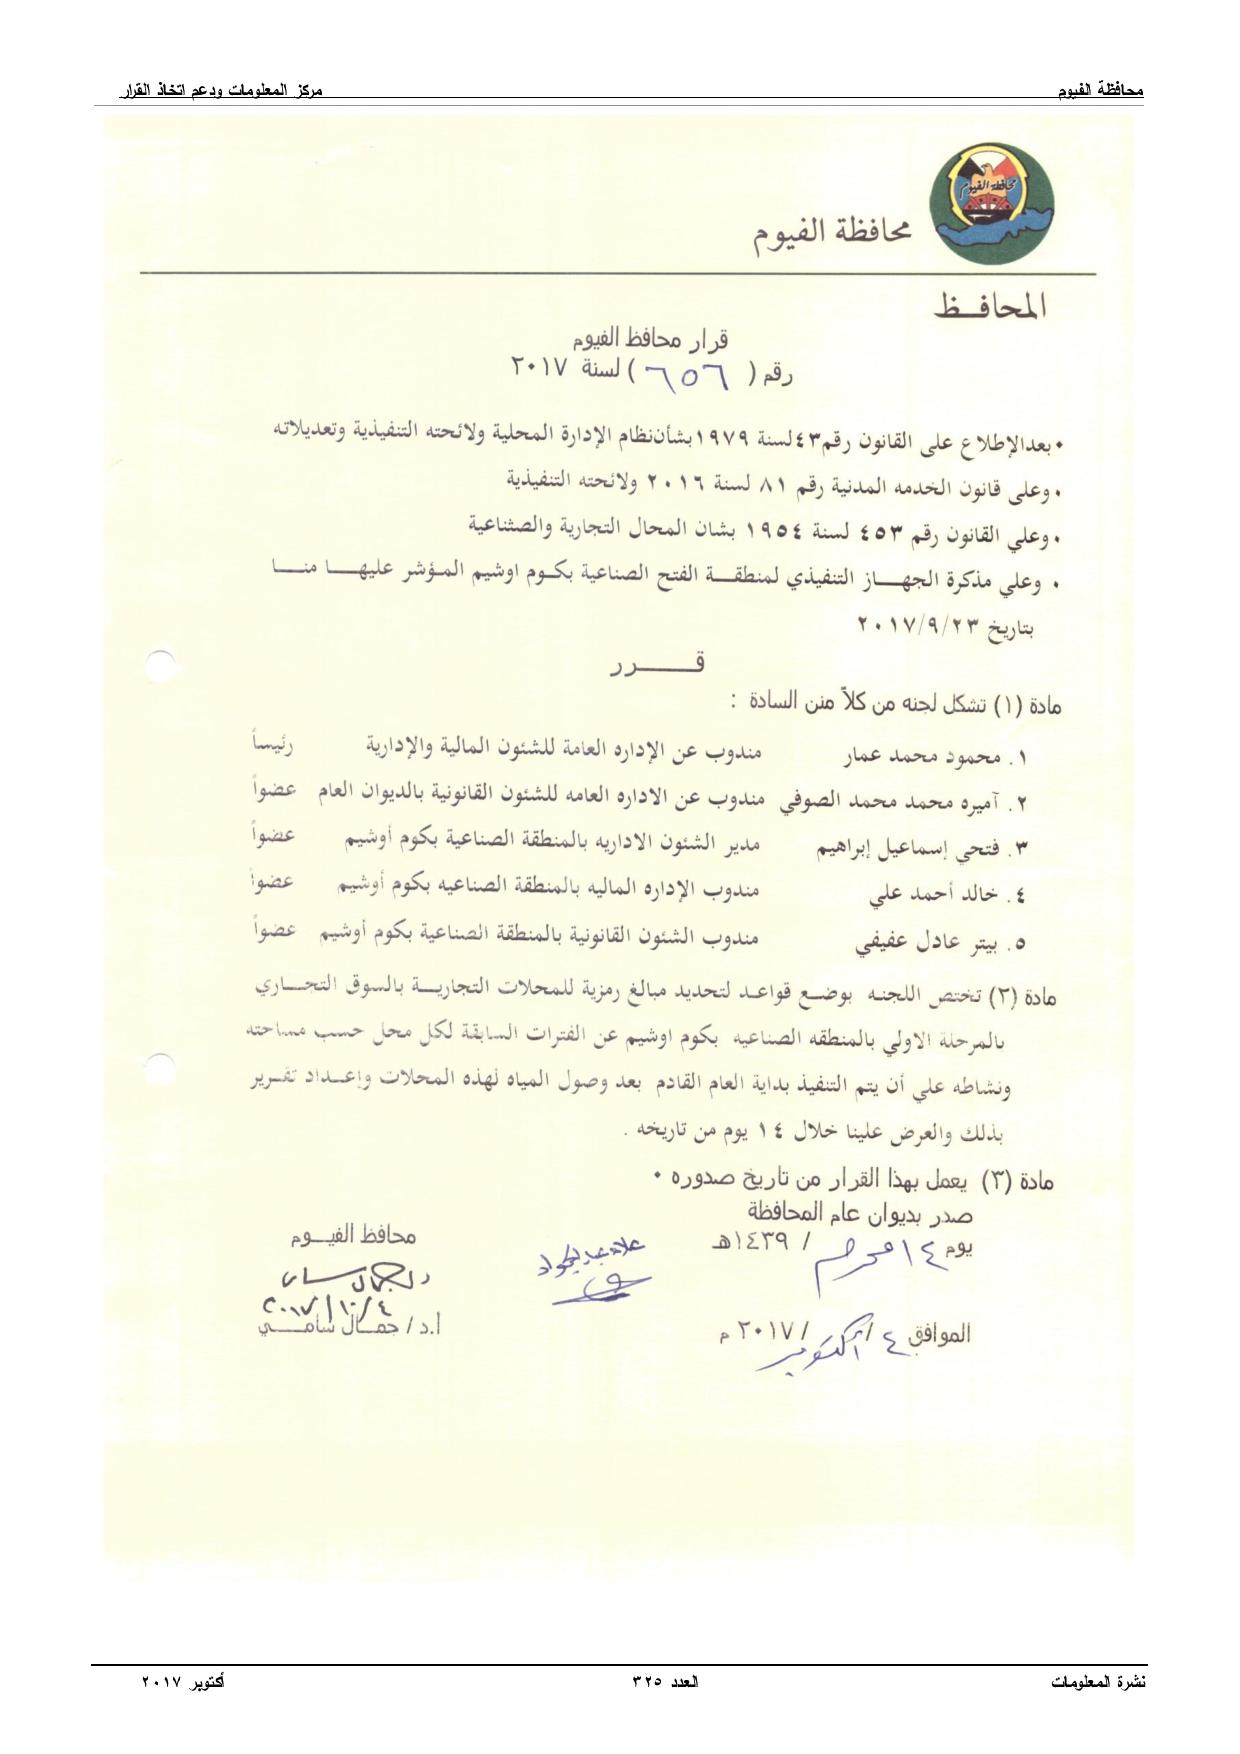 محافظة الفيوم
مركز المعلومات ودعم اتخاذ القرار
محافظة الفيوم
محافظة الفيوم
المحافـــظ
قرار محافظ الفيوم
رقم ( ٦٥٦ ) لسنة ٢٠١٧
• بعدالإطلاع على القانون رقم٤٣لسنة ١٩٧٩بشأن‌نظام الإدارة المحلية ولائحته التنفيذية وتعديلاته
• وعلى قانون الخدمه المدنية رقم ٨١ لسنة ٢٠١٦ ولائحته التنفيذية
• وعلي القانون رقم ٤٥٣ لسنة ١٩٥٤ بشان المحال التجارية والصناعية
• وعلي مذكرة الجهـــاز التنفيذي لمنطقــة الفتح الصناعية بكـوم اوشيم المـؤشر عليهـــا منـــا
بتاريخ ٢٠١٧/٩/٢٣
قـــــرر
مادة (١) تشكل لجنه من كلاً منن السادة :
١. محمود محمد عمار مندوب عن الإداره العامة للشئون المالية والإدارية رئيساً
٢. آميره محمد محمد الصوفي مندوب عن الاداره العامه للشئون القانونية بالديوان العام عضواً
٣. فتحي إسماعيل إبراهيم مدير الشئون الاداريه بالمنطقة الصناعية بكوم أوشيم عضواً
٤. خالد أحمد علي مندوب الإداره الماليه بالمنطقة الصناعيه بكوم أوشيم عضواً
٥. بيتر عادل عفيفي مندوب الشئون القانونية بالمنطقة الصناعية بكوم أوشيم عضواً
مادة (٢) تختص اللجنـه بوضــع قواعـد لتحديد مبالغ رمزية للمحلات التجاريــة بالسوق التجــاري
بالمرحلة الاولي بالمنطقه الصناعيه بكوم اوشيم عن الفترات السابقة لكل محل حسب مساحته
ونشاطه علي أن يتم التنفيذ بداية العام القادم بعد وصول المياه لهذه المحلات وإعـداد تقـرير
بذلك والعرض علينا خلال ١٤ يوم من تاريخه .
مادة (٣) يعمل بهذا القرار من تاريخ صدوره •
صدر بديوان عام المحافظة
يوم ١٤ محرم / ١٤٣٩هـ
الموافق ٤ / أكتوبر / ٢٠١٧ م
علاء عبد الجواد
محافظ الفيـــوم
د. جمال سامى
٢٠١٧/١٠/٤
أ.د/ جمــال سامــــي
نشرة المعلومات
العدد ٣٢٥
أكتوبر ٢٠١٧